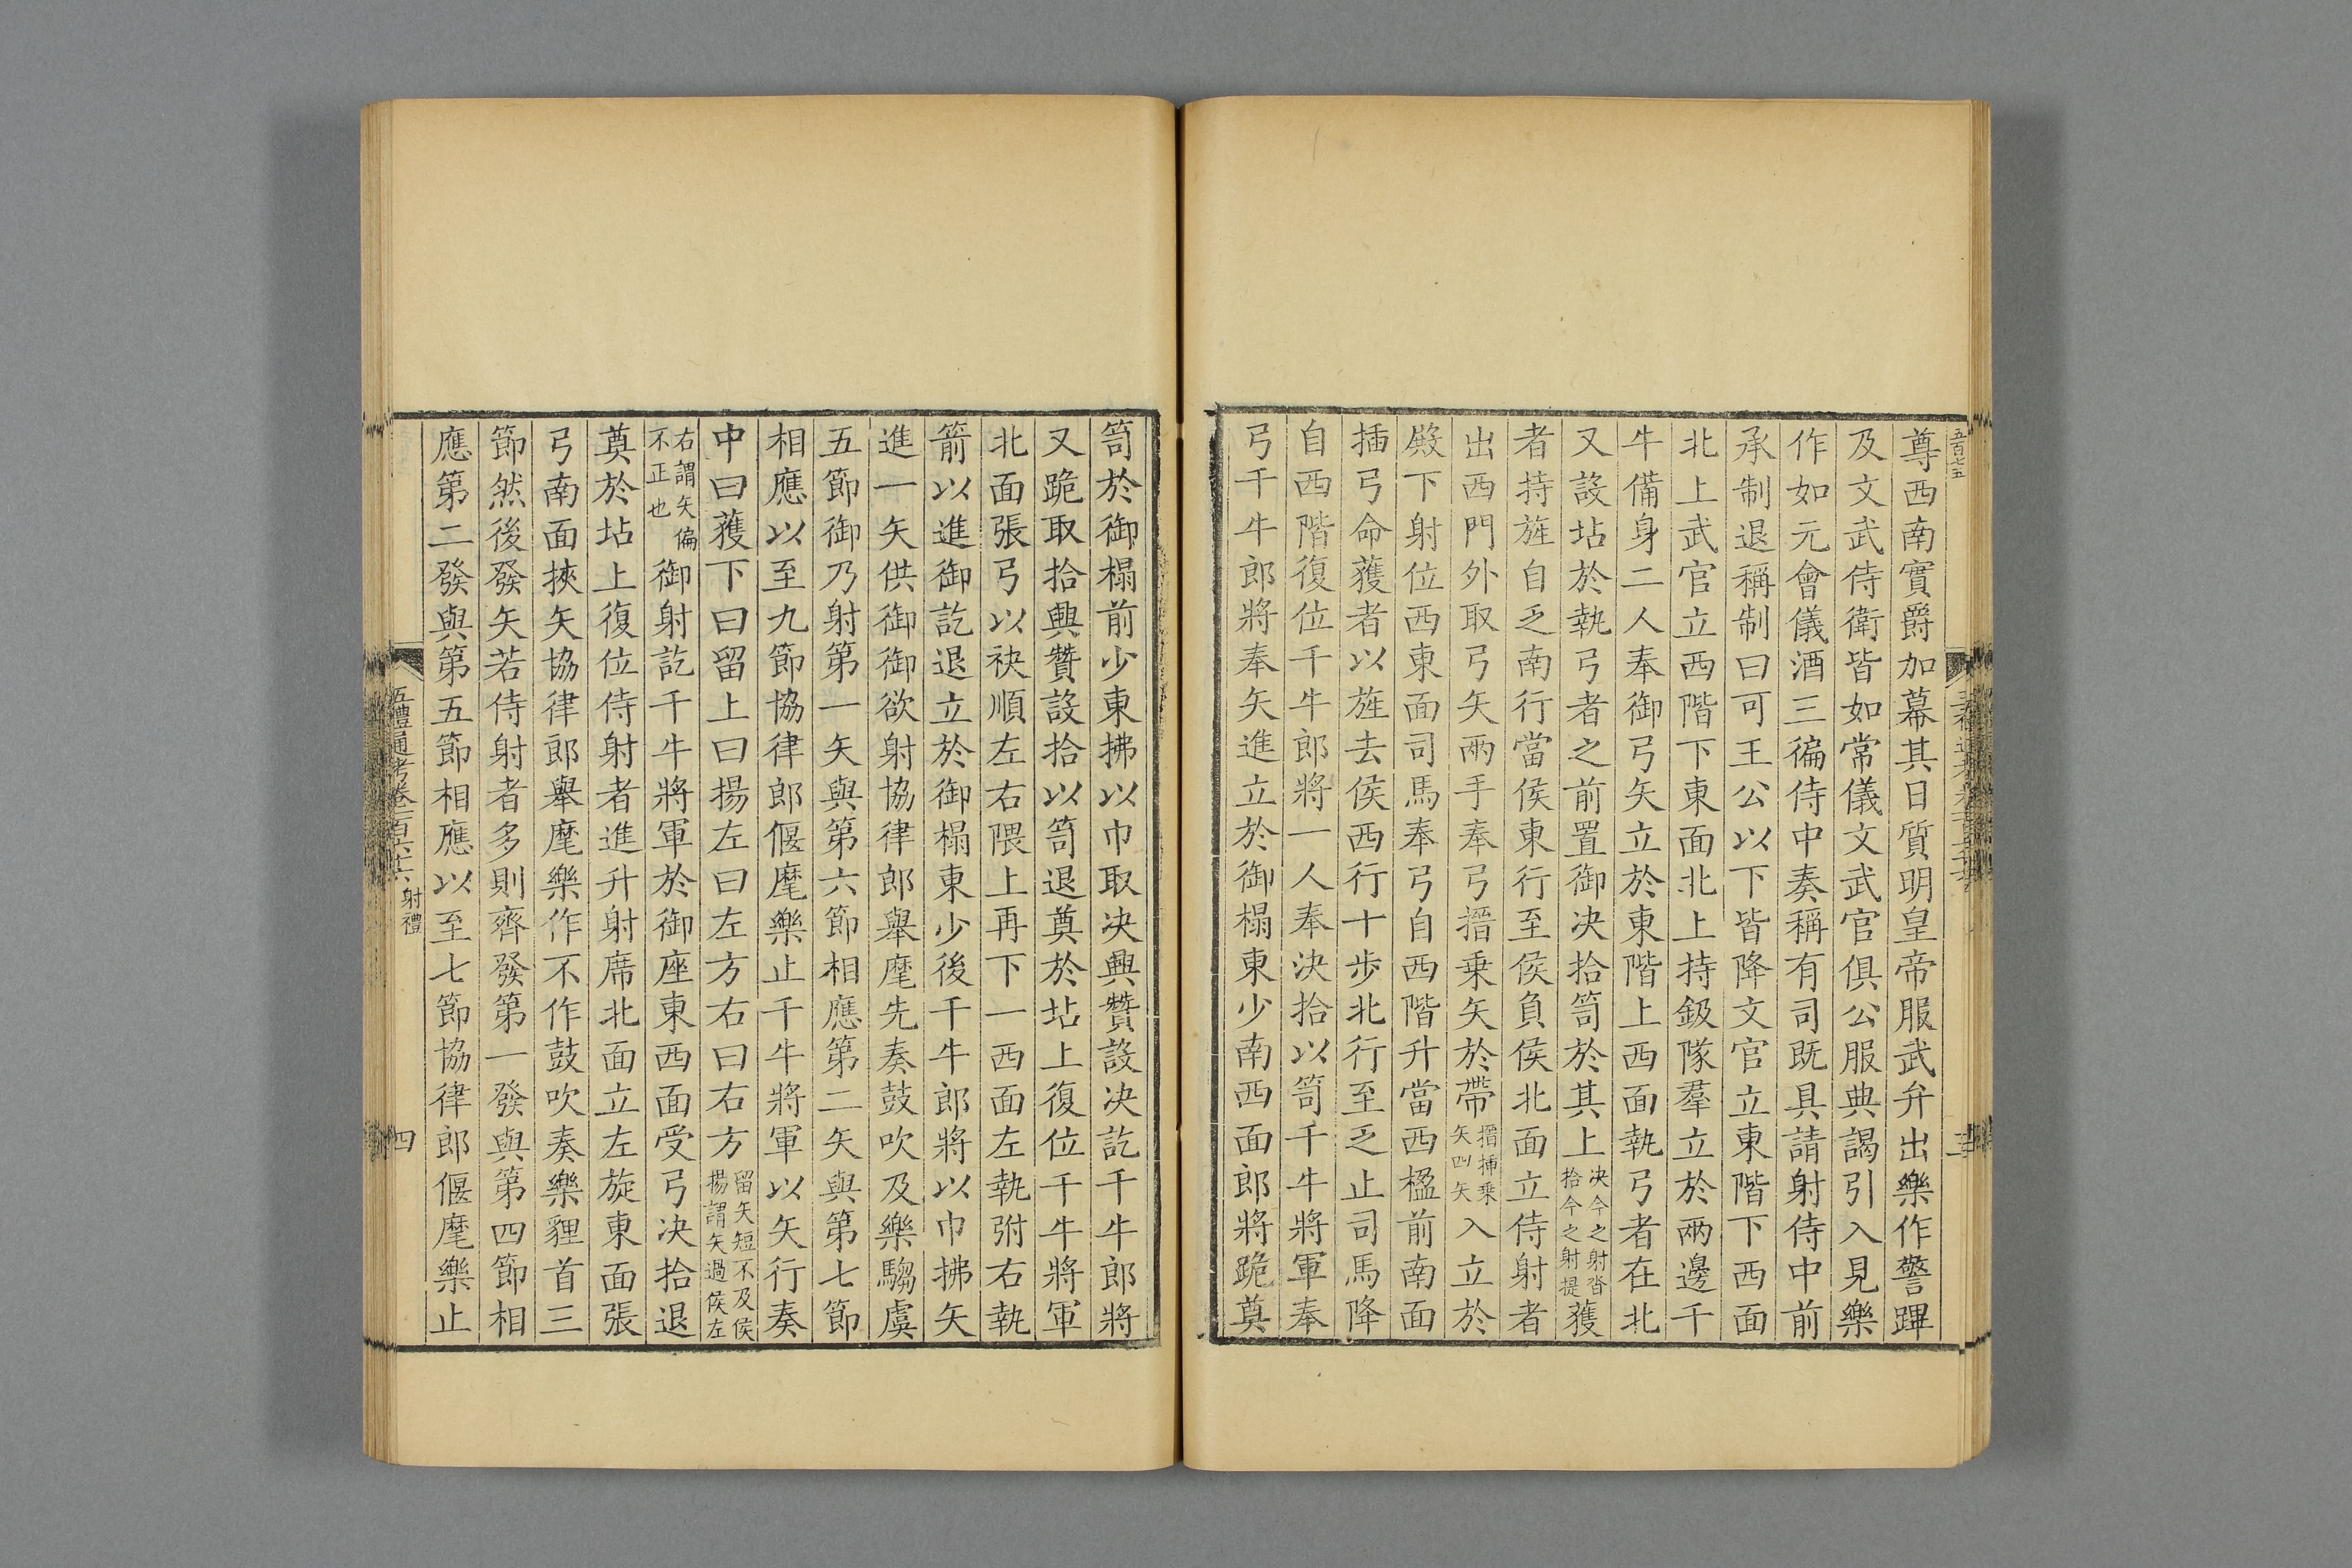 五百七五
尊西南實爵加冪其日質明皇帝服武弁出樂作警蹕
及文武侍衛皆如常儀文武官俱公服典謁引入見樂
作如元會儀酒三徧侍中奏稱有司既具請射侍中前
承制退稱制曰可王公以下皆降文官立東階下西面
北上武官立西階下東面北上持鈒隊羣立於兩邊千
牛備身二人奉御弓矢立於東階上西面執弓者在北
又設坫於執弓者之前置御决拾笥於其上决今之射沓拾今之射提獲
者持旌自乏南行當侯東行至侯負侯北面立侍射者
出西門外取弓矢兩手奉弓搢乗矢於帶搢揷乗矢四矢入立於
殿下射位西東面司馬奉弓自西階升當西楹前南面
揷弓命獲者以旌去侯西行十步北行至乏止司馬降
自西階復位千牛郎將一人奉决拾以笥千牛將軍奉
弓千牛郎將奉矢進立於御榻東少南西面郎將跪奠
笥於御榻前少東拂以巾取决興贊設决訖千牛郎將
又跪取拾興贊設拾以笥退奠於坫上復位千牛將軍
北面張弓以袂順左右隈上再下一西面左執弣右執
箭以進御訖退立於御榻東少後千牛郎將以巾拂矢
進一矢供御御欲射協律郎舉麾先奏鼓吹及樂騶虞
五節御乃射第一矢與第六節相應第二矢與第七節
相應以至九節協律郎偃麾樂止千牛將軍以矢行奏
中曰獲下曰留上曰揚左曰左方右曰右方留矢短不及侯揚謂矢過侯左
右謂矢偏不正也御射訖千牛將軍於御座東西面受弓决拾退
奠於坫上復位侍射者進升射席北面立左旋東面張
弓南面挾矢協律郎舉麾樂作不作鼓吹奏樂貍首三
節然後發矢若侍射者多則齊發第一發與第四節相
應第二發與第五節相應以至七節協律郎偃麾樂止
五禮通考卷一百六十六 射禮
四